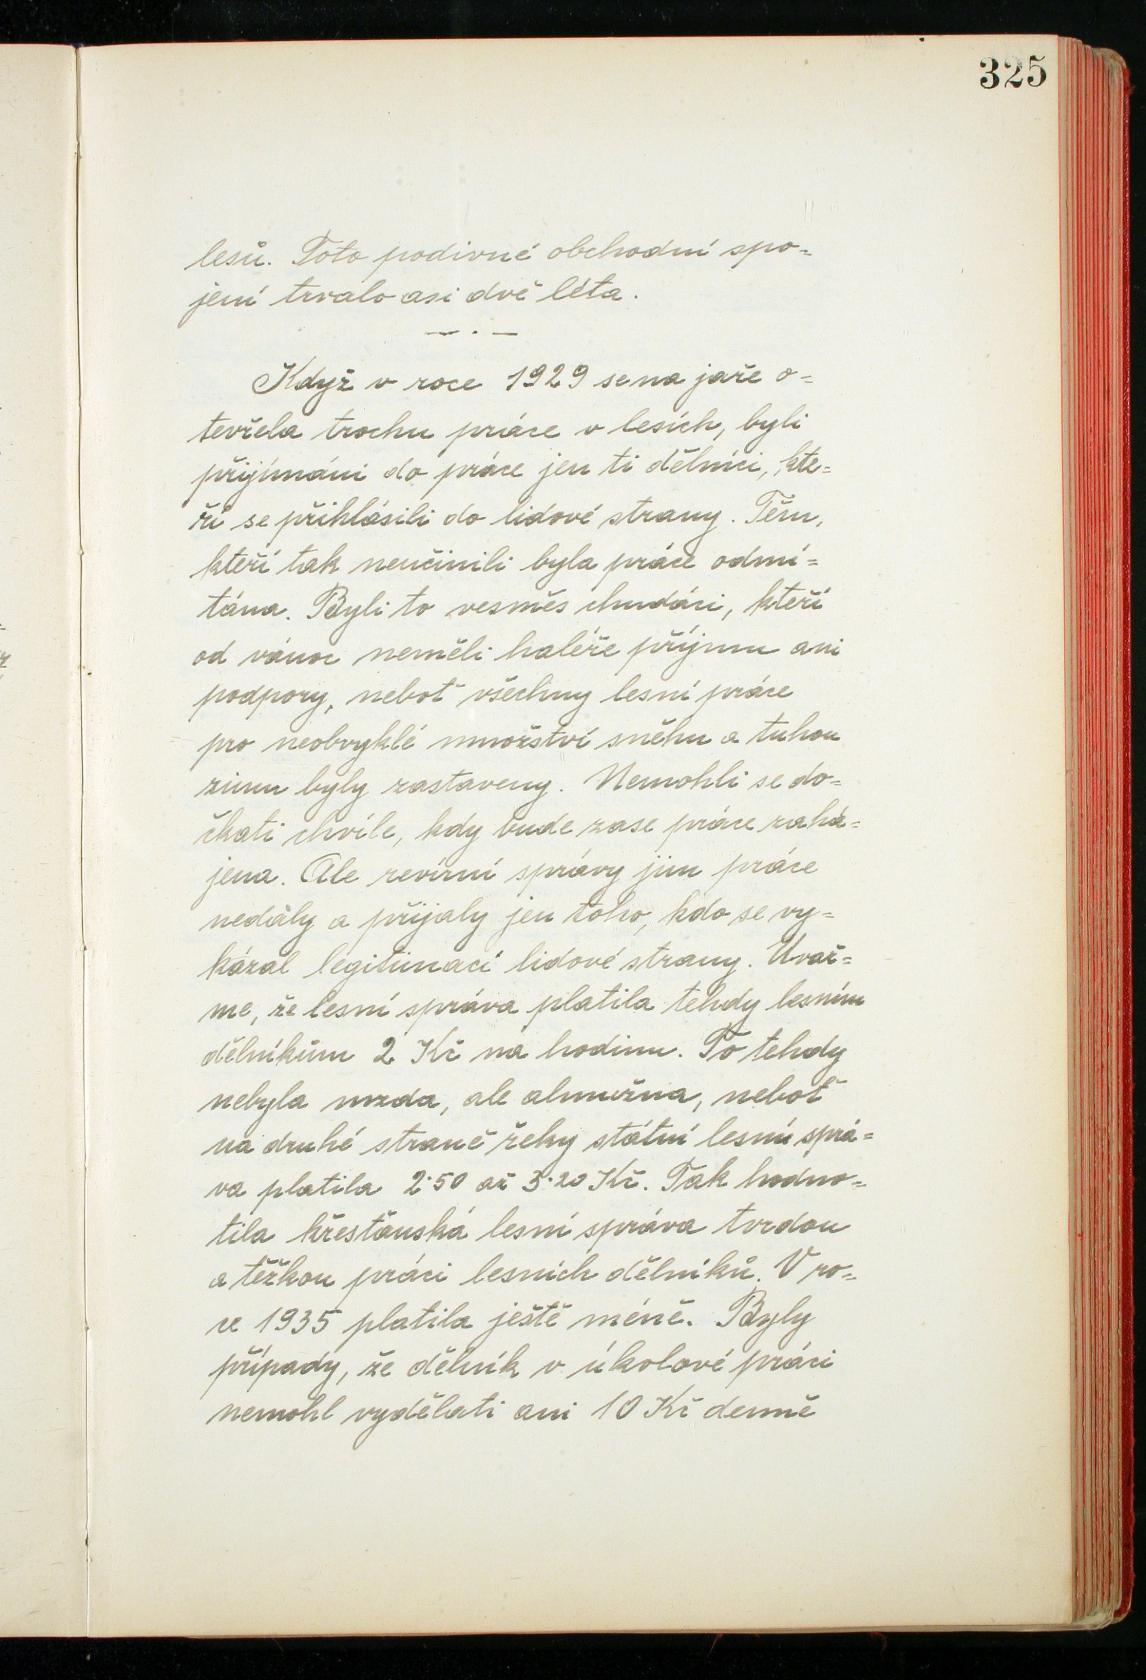 325
lesů. Toto podivné obchodní spo=
jení trvalo asi dvě léta.
Když v roce 1929 se na jaře o=
tevřela trochu práce v lesích, byli
přijímáni do práce jen ti dělníci, kte=
ří se přihlásili do lidové strany. Těm,
kteří tak neučinili byla práce odmí=
tána. Byli to vesměs chudáci, kteří
od vánoc neměli haléře příjmu ani
podpory, neboť všechny lesní práce
pro neobvyklé množství sněhu a tuhou
zimu byly zastaveny. Nemohli se do=
čkati chvíle, kdy bude zase práce zahá=
jena. Ale revírní správy jim práce
nedály a přijaly jen toho, kdo se vy=
kázal legitimací lidové strany. Uvaž=
me, že lesní správa platila tehdy lesním
dělníkům 2 Kč na hodinu. To tehdy
nebyla mzda, ale almužna, neboť
na druhé straně řeky státní lesní sprá=
va platila 2·50 až 3·20 Kč. Tak hodno=
tila křesťanská lesní správa tvrdou
a těžkou práci lesních dělníků. V ro=
ce 1935 platila ještě méně. Byly
případy, že dělník v úkolové práci
nemohl vydělati ani 10 Kč denně